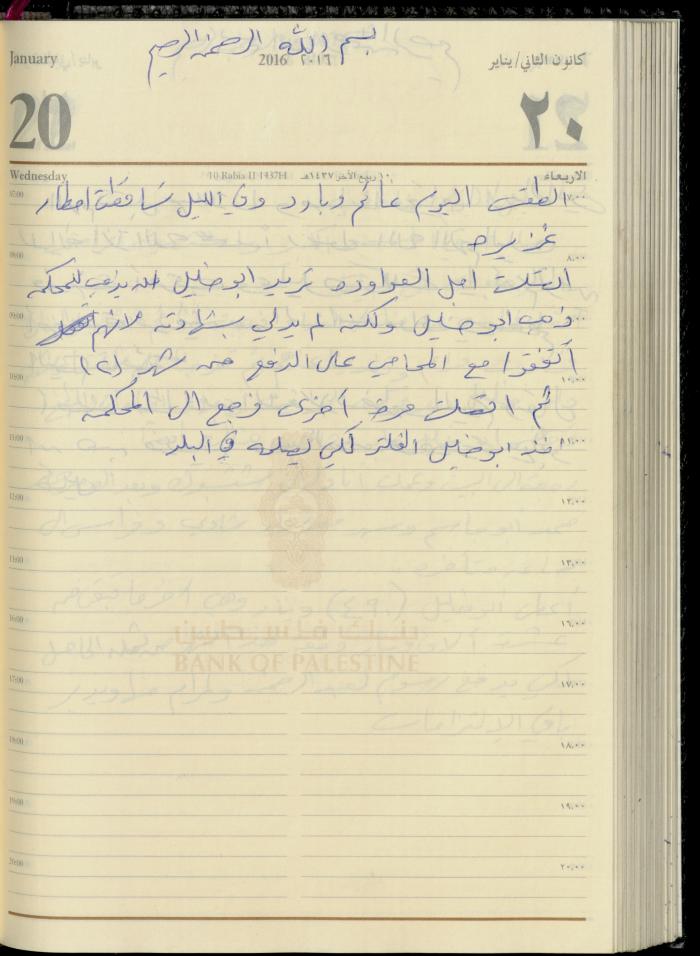 بسم الله الرحمن الرحيم
January 2016 ٢٠١٦ كانون الثاني/يناير
20 ٢٠
Wednesday 10 Rabia II 1437H ١٠ ربيع الآخر ١٤٣٧هـ الاربعاء
الطقس اليوم غائم وبارد وفي الليل تساقطت امطار
غزيره
اتصلت امل العواوده تريد ابو خليل يذهب للمحكمه
وذهب ابو خليل ولكنه لم يدلي بشهادته لانهم
أتفقوا مع المحامي على الدفع من شهر (٢)
ثم اتصلت مرة أخرى ورجع الى المحكمه
اخذ ابو خليل الفلتر لكي يصلحه في البلد
07:00 ٧,٠٠
08:00 ٨,٠٠
09:00 ٩,٠٠
10:00 ١٠,٠٠
11:00 ١١,٠٠
12:00 ١٢,٠٠
13:00 ١٣,٠٠
16:00 ١٦,٠٠
بنك فلسطين
BANK OF PALESTINE
17:00 ١٧,٠٠
18:00 ١٨,٠٠
19:00 ١٩,٠٠
20:00 ٢٠,٠٠